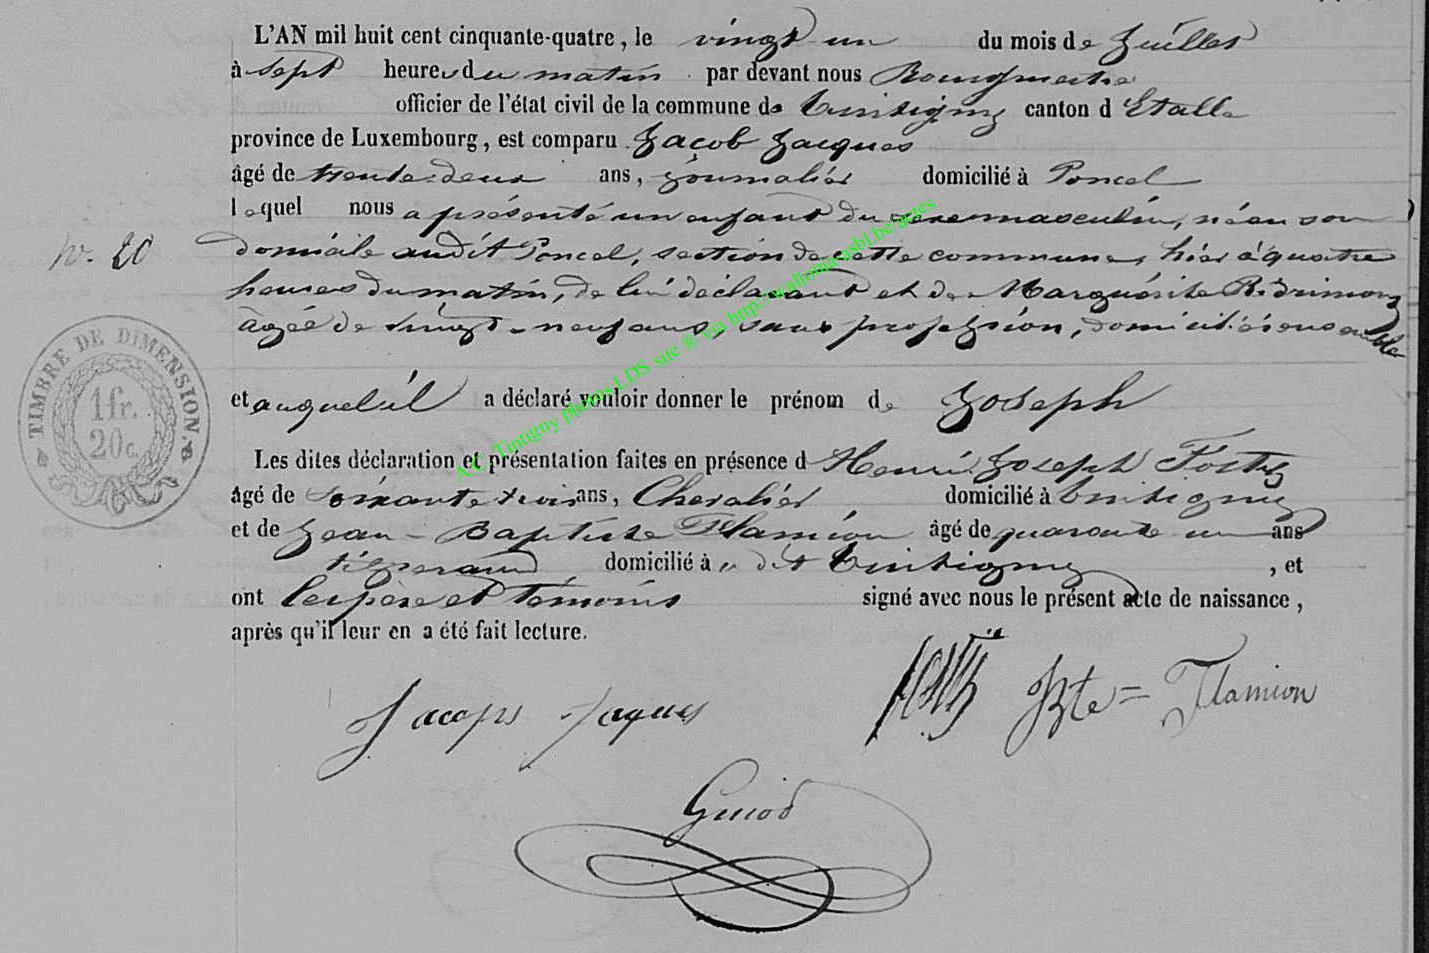 L'AN mil huit cent cinquante-quatre, le vingt un du mois de Juillet
à sept heures du matin par devant nous Bourgmestre
officier de l'état civil de la commune de Tintigny canton d'Etalle
province de Luxembourg, est comparu Jacob Jacques
âgé de trente-deux ans, journalier domicilié à Poncel
lequel nous a présenté un enfant du sexe masculin, né en son
domicile audit Poncel, section de cette commune, hier à quatre
heures du matin, de lui déclarant et de Marguérite
âgée de vingt-neuf ans, sans profession, domiciliés ensemble
N. 20
TIMBRE DE DIMENSION.
1 fr.
20 c.
et auquel il a déclaré vouloir donner le prénom de Joseph
Les dites déclaration et présentation faites en présence d Henri Joseph
âgé de soixante trois ans, domicilié à Tintigny
et de Jean-Baptiste Flamion âgé de quarante un ans
tisserand domicilié à dit Tintigny, et
ont les père et témoins signé avec nous le présent acte de naissance,
après qu'il leur en a été fait lecture.
Jaques
JBte = Flamion
Guiod
A.E. Tintigny photos LDS site ® via http://wallonia-asbl.be/actes